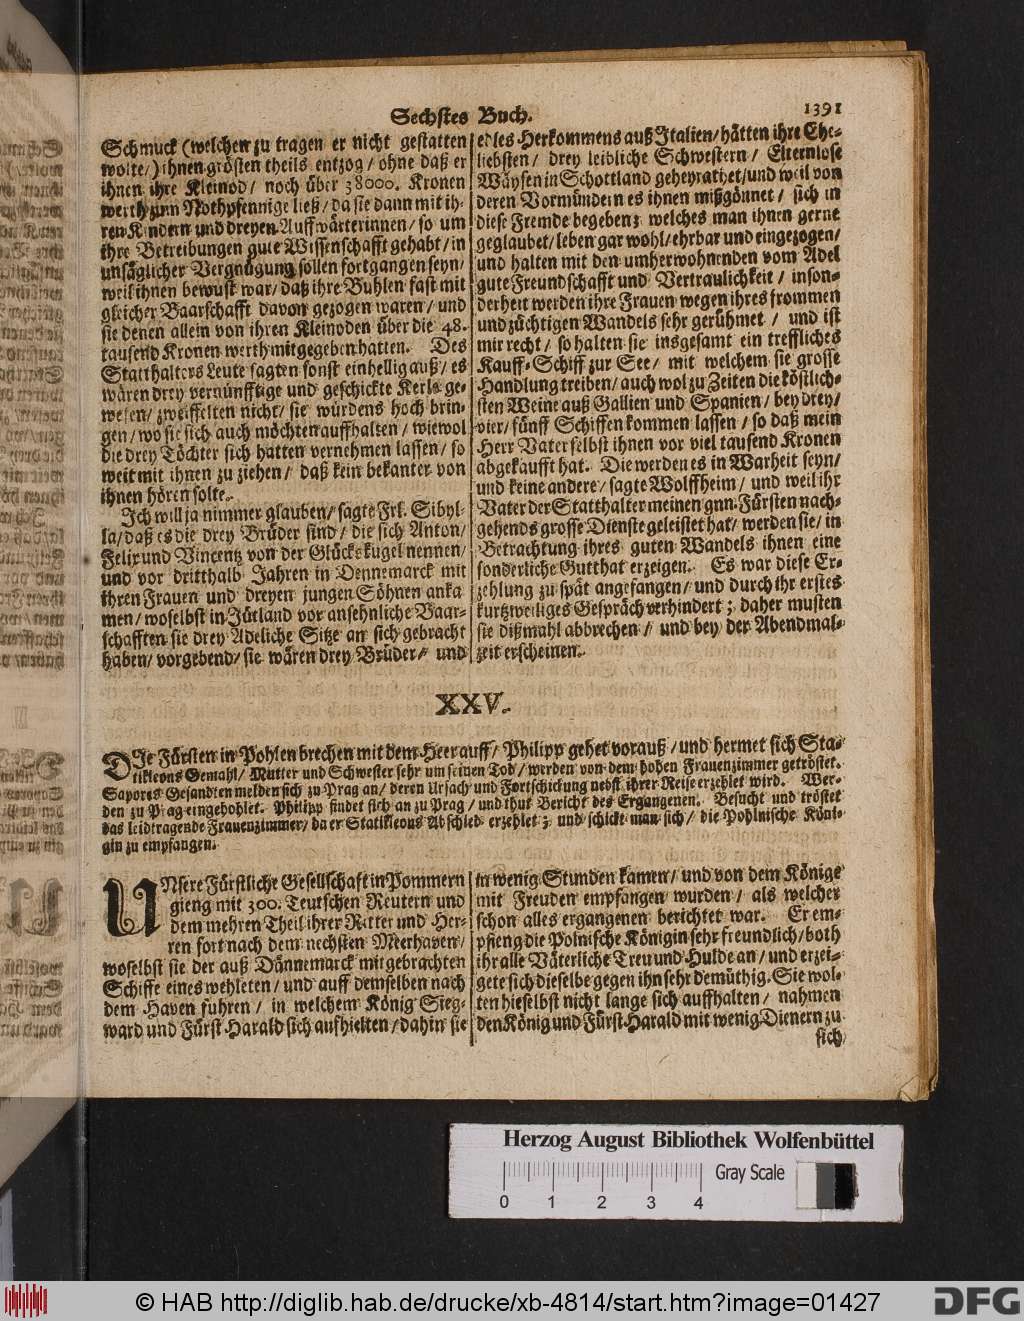 Sechstes Buch.
1391
Schmuck (welchen zu tragen er nicht gestatten
wolte/) ihnen grösten theils entzog/ ohne daß er
ihnen ihre Kleinod/ noch über 38000. Kronen
werth zum Nothpfennige ließ/ da sie dann mit ih-
ren Kindern und dreyen Auffwärterinnen/ so um
ihre Betreibungen gute Wissenschafft gehabt/ in
unsäglicher Vergnügung sollen fortgangen seyn/
weil ihnen bewust war/ daß ihre Buhlen fast mit
gleicher Baarschafft davon gezogen waren/ und
sie denen allein von ihren Kleinoden über die 48.
tausend Kronen werth mitgegeben hatten. Des
Statthalters Leute sagten sonst einhellig auß/ es
wären drey vernünfftige und geschickte Kerls ge-
wesen/ zweiffelten nicht/ sie würdens hoch brin-
gen/ wo sie sich auch möchten auffhalten/ wiewol
die drey Töchter sich hatten vernehmen lassen/ so
weit mit ihnen zu ziehen/ daß kein bekanter von
ihnen hören solte.
Ich will ja nimmer glauben/ sagte Frl. Sibyl-
la/ daß es die drey Brüder sind/ die sich Anton/
Felix und Vincentz von der Glückskugel nennen/
und vor dritthalb Jahren in Dennemarck mit
ihren Frauen und dreyen jungen Söhnen anka
men/ woselbst in Jütland vor ansehnliche Baar-
schafften sie drey Adeliche Sitze an sich gebracht
haben/ vorgebend/ sie wären drey Brüder/ und
edles Herkommens auß Italien/ hätten ihre Ehe-
liebsten/ drey leibliche Schwestern/ Elternlose
Wäysen in Schottland geheyrathet/ und weil von
deren Vormündern es ihnen mißgönnet/ sich in
diese Fremde begeben; welches man ihnen gerne
geglaubet/ leben gar wohl/ ehrbar und eingezogen/
und halten mit den umherwohnenden vom Adel
gute Freundschafft und Vertraulichkeit/ inson-
derheit werden ihre Frauen wegen ihres frommen
und züchtigen Wandels sehr gerühmet/ und ist
mir recht/ so halten sie insgesamt ein treffliches
Kauff-Schiff zur See/ mit welchem sie grosse
Handlung treiben/ auch wol zu Zeiten die köstlich-
sten Weine auß Gallien und Spanien/ bey drey/
vier/ fünff Schiffen kommen lassen/ so daß mein
Herr Vater selbst ihnen vor viel tausend Kronen
abgekaufft hat. Die werden es in Warheit seyn/
und keine andere/ sagte Wolffheim/ und weil ihr
Vater der Statthalter meinen gnn. Fürsten nach-
gehends grosse Dienste geleistet hat/ werden sie/ in
Betrachtung ihres guten Wandels ihnen eine
sonderliche Gutthat erzeigen. Es war diese Er-
zehlung zu spät angefangen/ und durch ihr erstes
kurtzweiliges Gespräch verhindert; daher musten
sie dißmahl abbrechen/ und bey der Abendmal-
zeit erscheinen.
XXV.
DIe Fürsten in Pohlen brechen mit dem Heer auff/ Philipp gehet vorauß/ und hermet sich Sta-
tikleons Gemahl/ Mutter und Schwester sehr um seinen Tod/ werden von dem hohen Frauenzimmer getröstet.
Sapores Gesandten melden sich zu Prag an/ deren Ursach und Fortschickung nebst ihrer Reise erzehlet wird. Wer-
den zu Prag eingehohlet. Philipp findet sich an zu Prag/ und thut Bericht des Ergangenen. Besucht und tröstet
das leidtragende Frauenzimmer/ da er Statikleons Abschied erzehlet; und schickt man sich/ die Pohlnische Köni-
gin zu empfangen.
UNsere Fürstliche Gesellschaft in Pommern
gieng mit 300. Teutschen Reutern und
dem mehren Theil ihrer Ritter und Her-
ren fort nach dem nechsten Meerhaven/
woselbst sie der auß Dännemarck mitgebrachten
Schiffe eines wehleten/ und auff demselben nach
dem Haven fuhren/ in welchem König Sieg-
ward und Fürst Harald sich aufhielten/ dahin sie
in wenig Stunden kamen/ und von dem Könige
mit Freuden empfangen wurden/ als welcher
schon alles ergangenen berichtet war. Er em-
pfieng die Polnische Königin sehr freundlich/ both
ihr alle Väterliche Treu und Hulde an/ und erzei-
gete sich dieselbe gegen ihn sehr demüthig. Sie wol-
ten hieselbst nicht lange sich auffhalten/ nahmen
den König und Fürst Harald mit wenig Dienern zu
sich/
Herzog August Bibliothek Wolfenbüttel
Gray Scale
0 1 2 3 4
© HAB http://diglib.hab.de/drucke/xb-4814/start.htm?image=01427
DFG